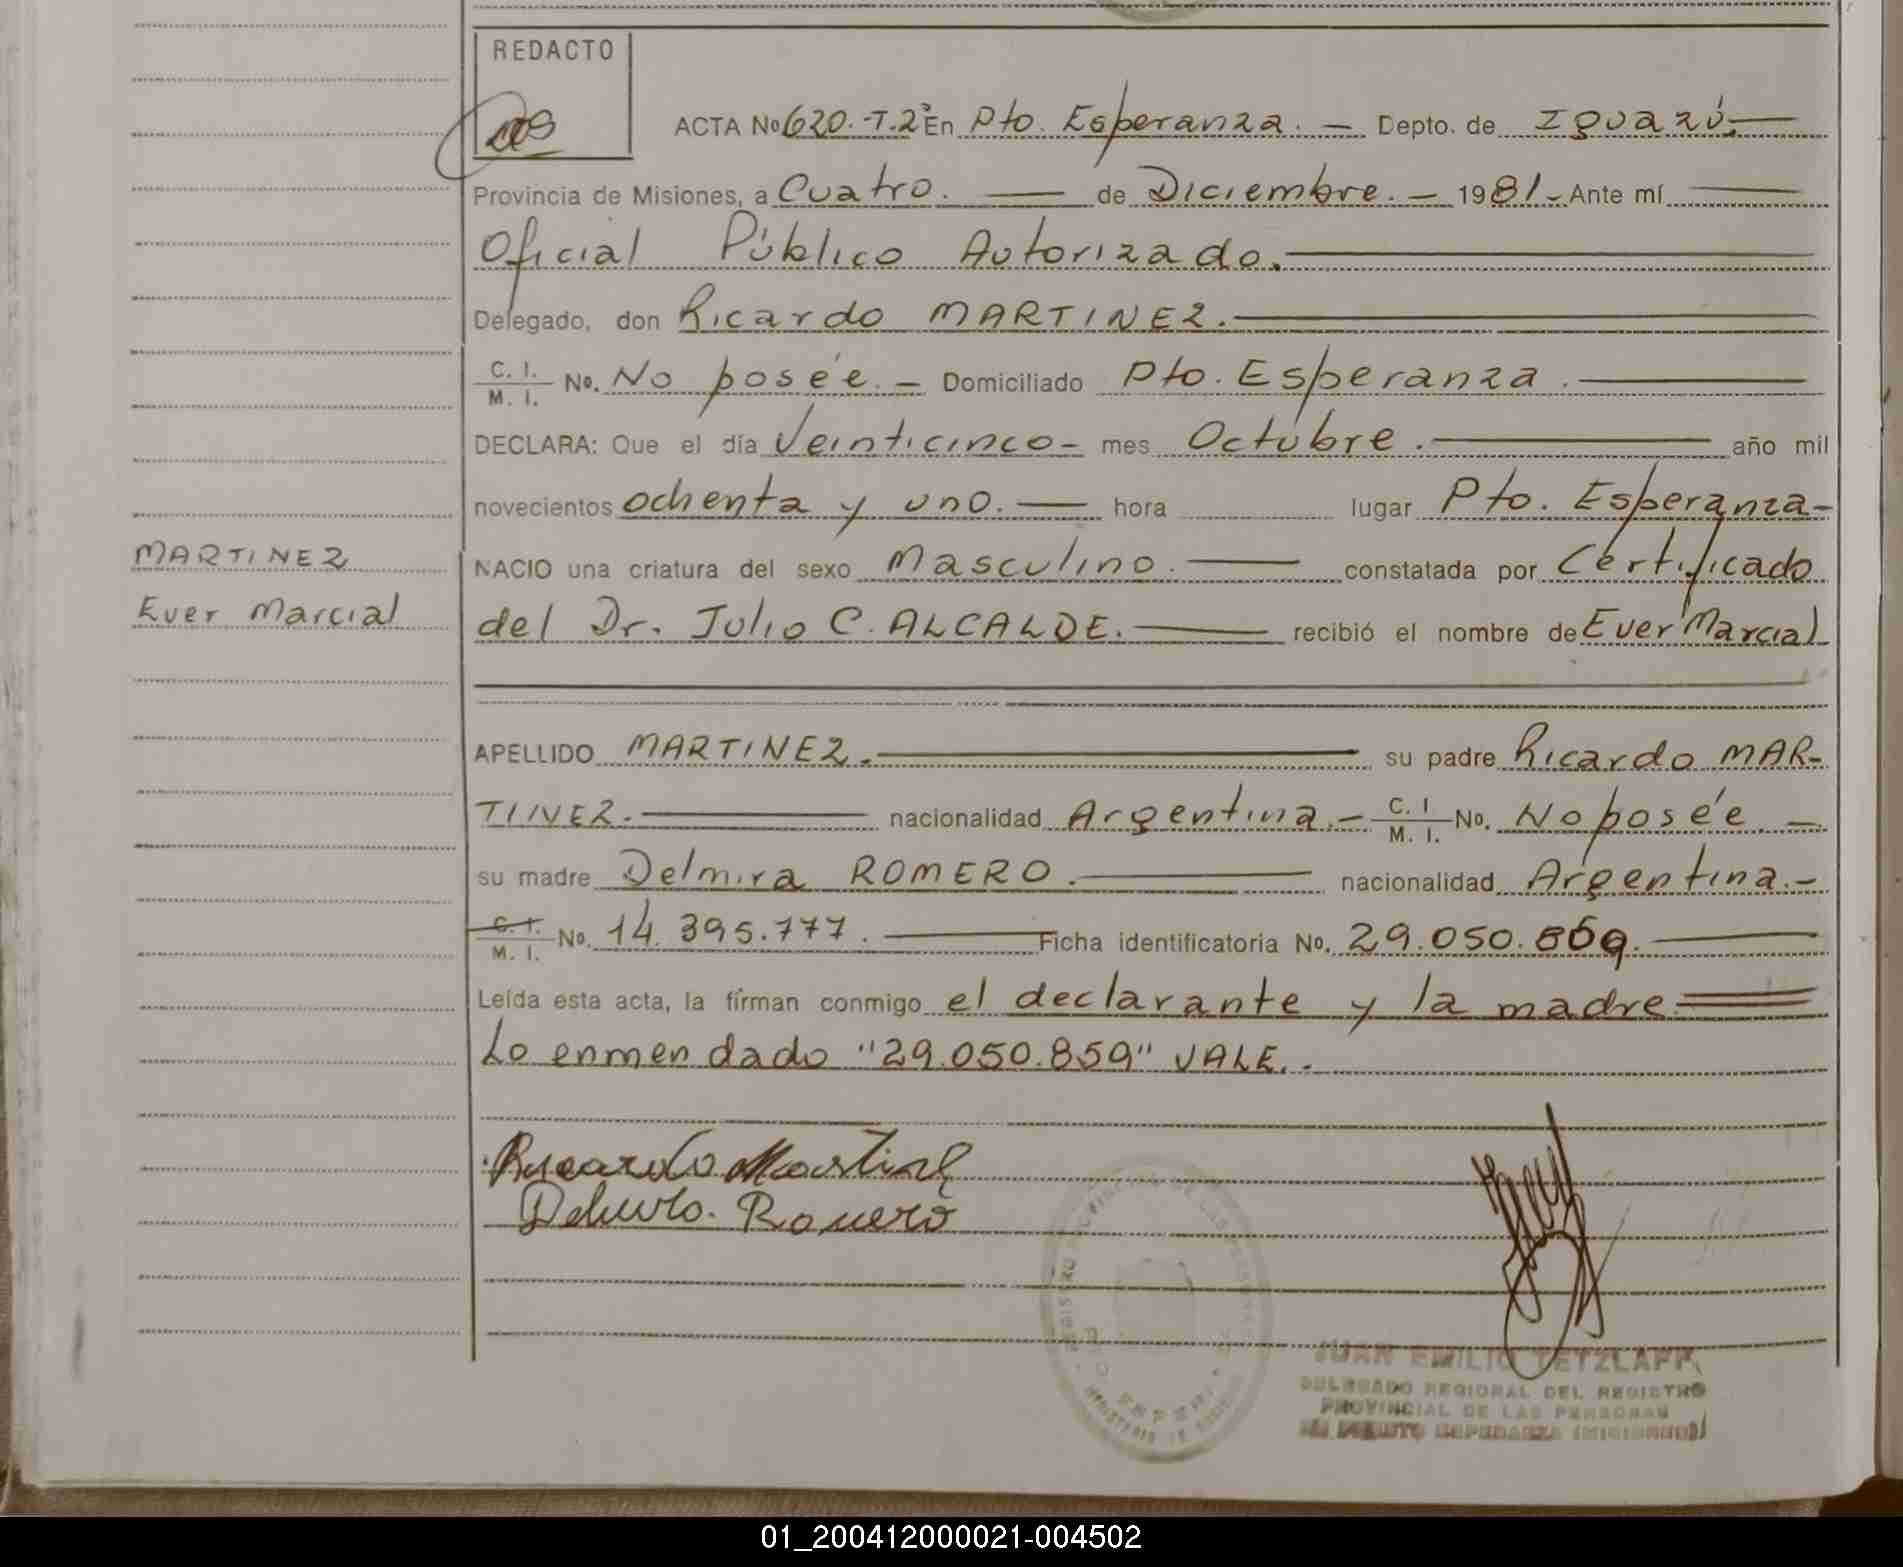 REDACTO
ACTA No 620.-T.2º En Pto. Esperanza. — Depto. de Iguazú.—
Provincia de Misiones, a Cuatro. — de Diciembre. — 1981.- Ante mí —
Oficial Público Autorizado. —
Delegado, don Ricardo MARTINEZ. —
C. I. M. I. No. No posée. — Domiciliado Pto. Esperanza. —
DECLARA: Que el día Veinticinco- mes Octubre. — año mil
novecientos ochenta y uno. — hora lugar Pto. Esperanza-
MARTINEZ
NACIO una criatura del sexo Masculino. — constatada por Certificado
Ever Marcial
del Dr. Julio C. ALCALDE. — recibió el nombre de Ever Marcial
APELLIDO MARTINEZ. — su padre Ricardo MAR-
TINEZ. — nacionalidad Argentina.— C. I M. I. No. No posée —
su madre Delmira ROMERO. — nacionalidad Argentina.-
C. I. M. I. No. 14.395.777. — Ficha identificatoria No. 29.050.859. —
Leída esta acta, la firman conmigo el declarante y la madre
Lo enmendado "29.050.859" VALE.-
Ricardo Martinez
Delmira Romero
JUAN EMILIO TETZLAFF
DELEGADO REGIONAL DEL REGISTRO
PROVINCIAL DE LAS PERSONAS
EN PUERTO ESPERANZA (MISIONES)
01_200412000021-004502